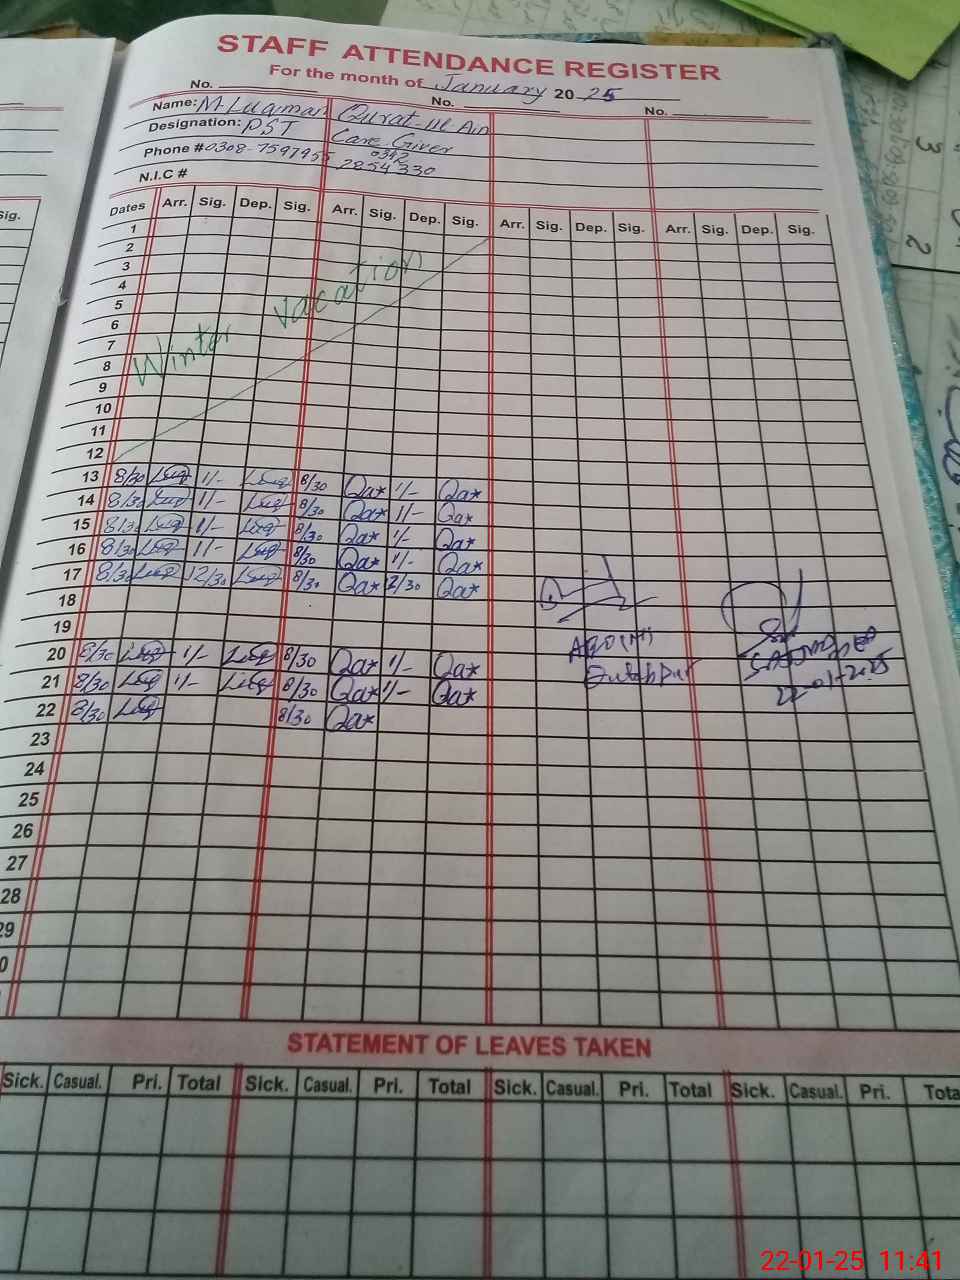 STAFF ATTENDANCE REGISTER
For the month of January 2025
No. No. No.
Name: M.Luqman Qurat-ul-Ain
Designation: PST Care Giver
Phone #0308-7597955 0342 2854330
N.I.C #
Dates Arr. Sig. Dep. Sig. Arr. Sig. Dep. Sig. Arr. Sig. Dep. Sig. Arr. Sig. Dep. Sig.
1
2
3
4
5
6
7
8
9
10
11
12
Winter vacation
13 8/30 Luq 1/- Luq 8/30 Qa* 1/- Qa*
14 8/30 Luq 1/- Luq 8/30 Qa* 1/- Qa*
15 8/30 Luq 1/- Luq 8/30 Qa* 1/- Qa*
16 8/30 Luq 1/- Luq 8/30 Qa* 1/- Qa*
17 8/30 Luq 12/30 Luq 8/30 Qa* 2/30 Qa*
18
19
20 8/30 Luq 1/- Luq 8/30 Qa* 1/- Qa*
21 8/30 Luq 1/- Luq 8/30 Qa* 1/- Qa*
22 8/30 Luq 8/30 Qa*
22-01-2025
23
24
25
26
27
28
29
0
STATEMENT OF LEAVES TAKEN
Sick. Casual. Pri. Total Sick. Casual. Pri. Total Sick. Casual. Pri. Total Sick. Casual. Pri. Tota
22-01-25 11:41
Sig.
3
2